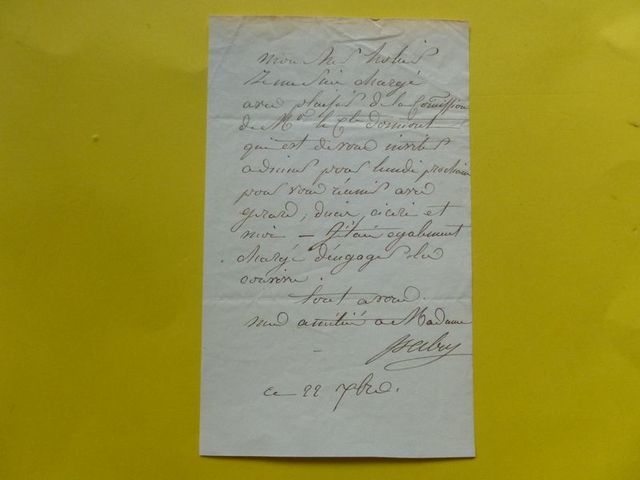 mon cher
Je me suis chargé
avec plaisir de la Comission
de Mr le Cte
qui est de vous inviter
a diner pour lundi prochain
pour vous réunir avec
gerard, ducis, ciceri et
moi — J'étais egalement
chargé d'engager
tout a vous.
mes amitiés a Madame
ce 22 Xbre.